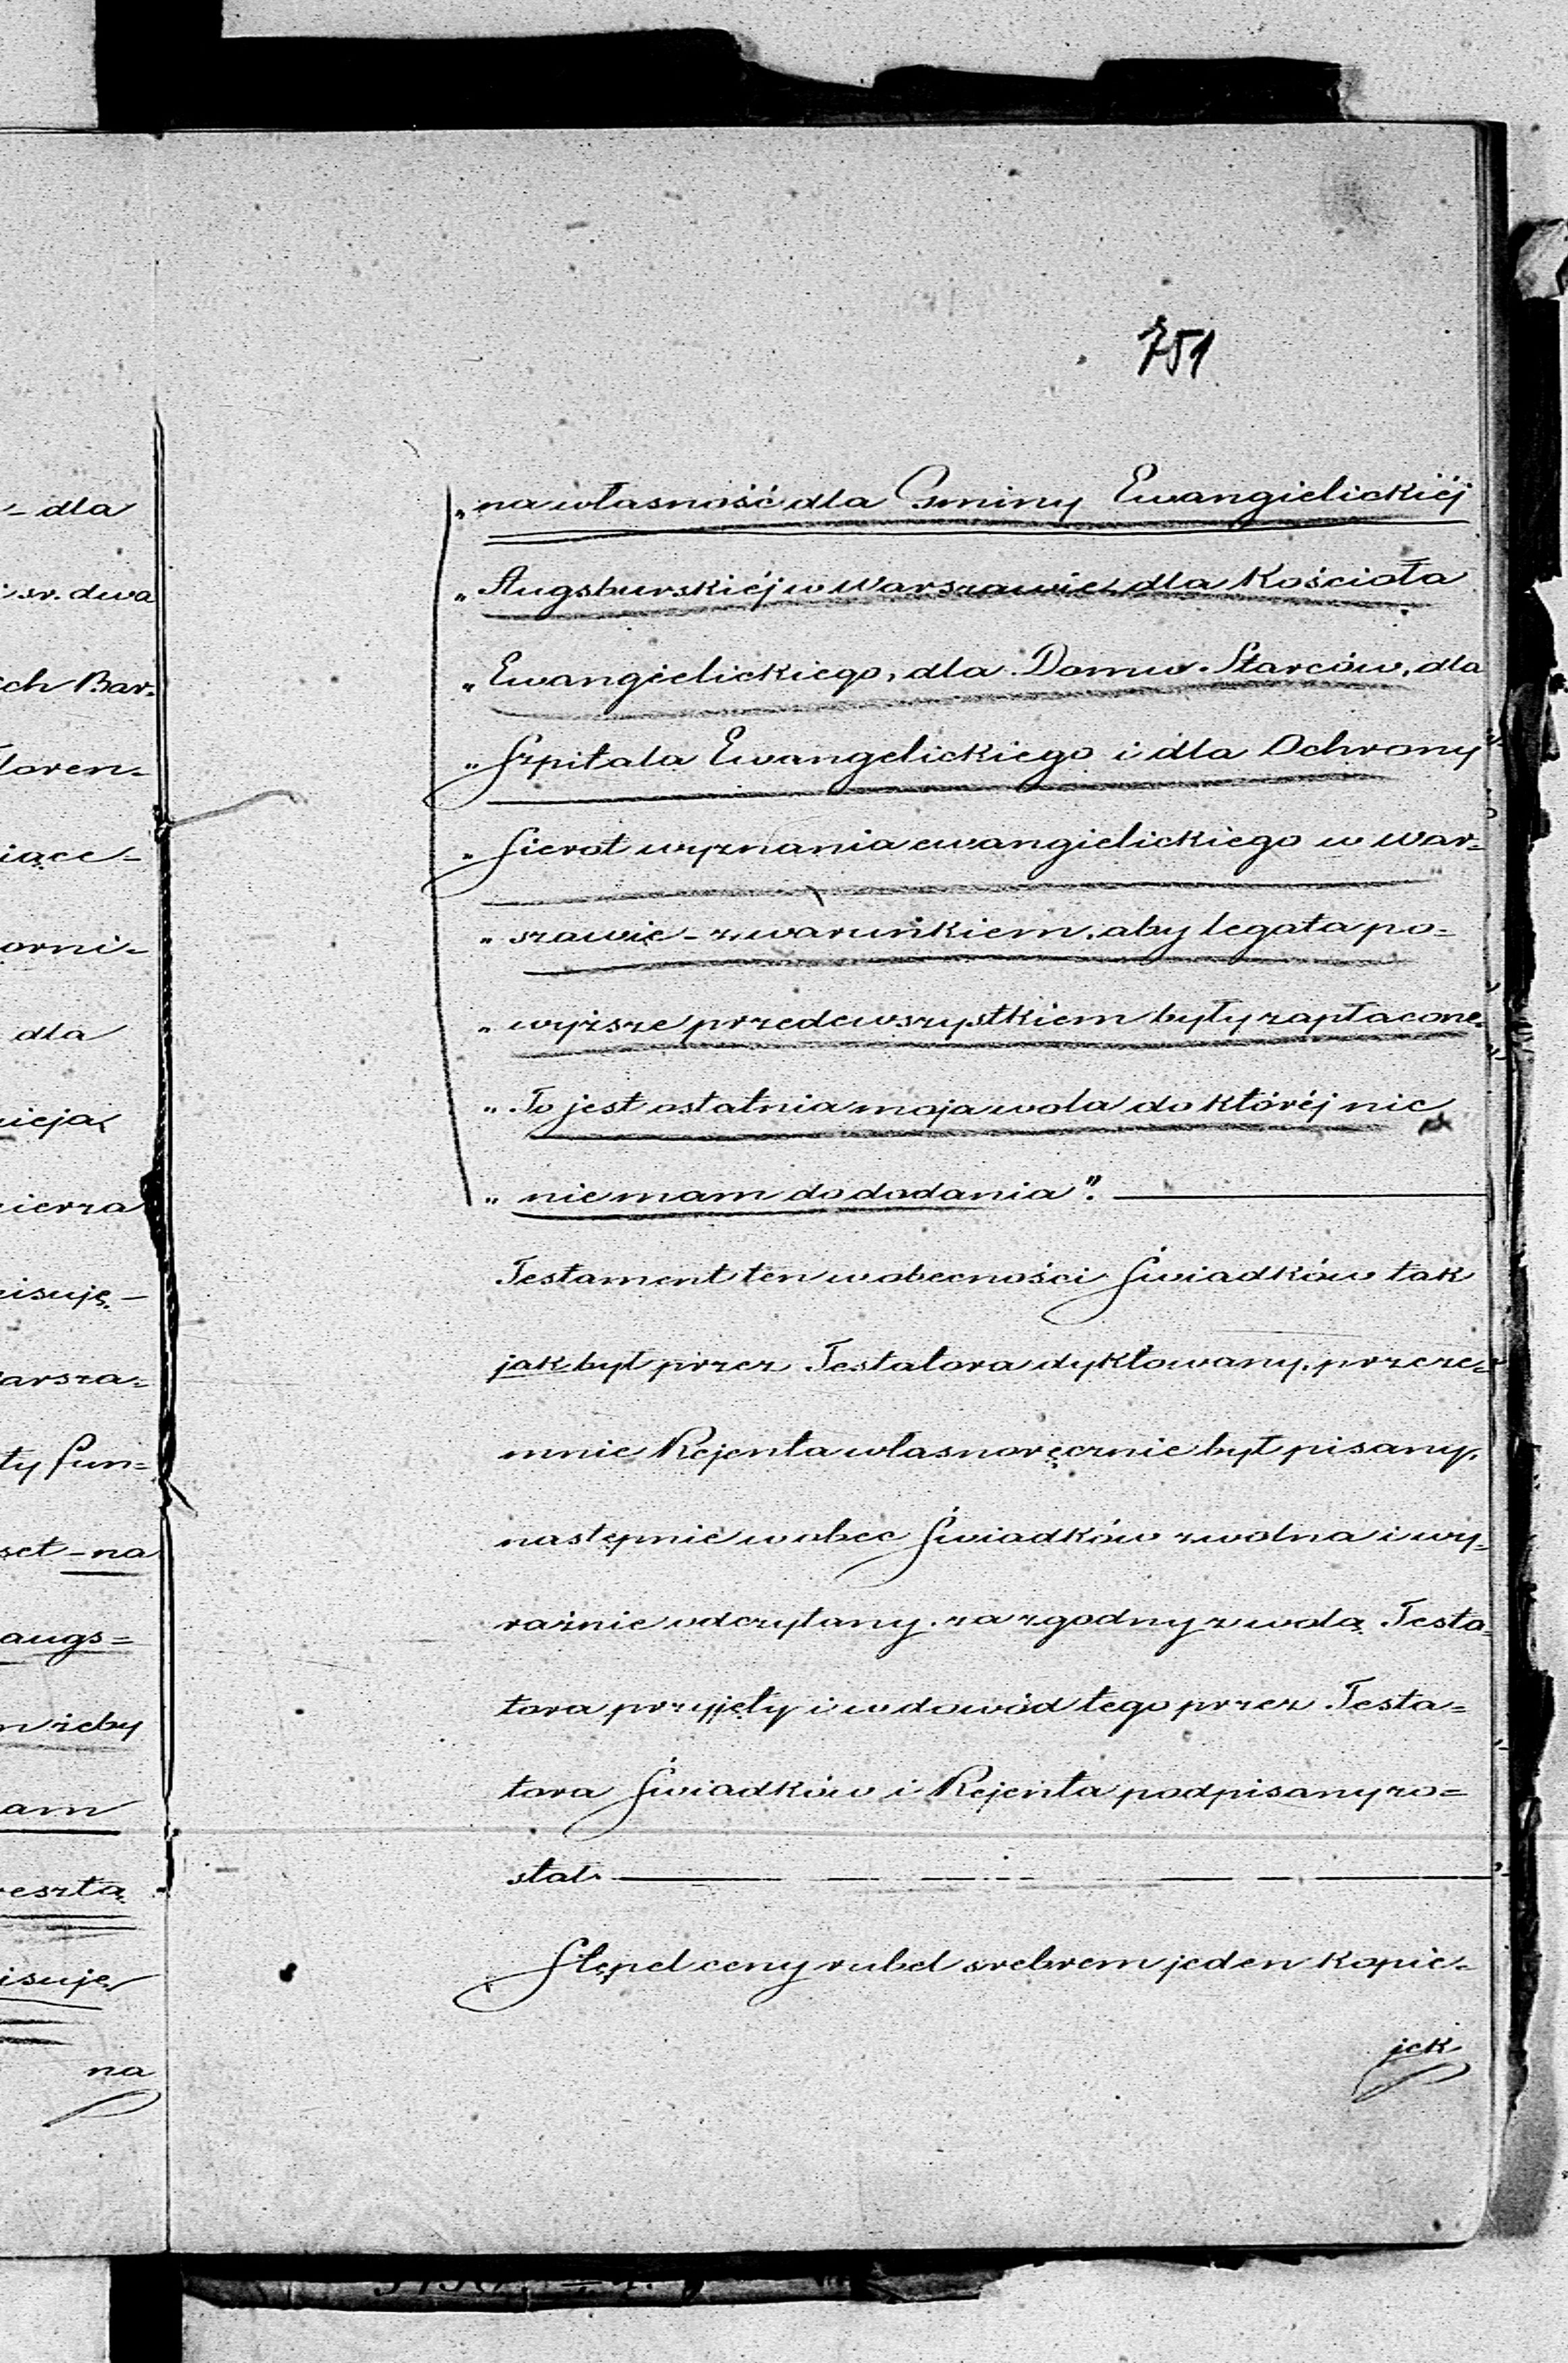 751
„na własność dla Gminy Ewangielickiéj
„Augsburskiéj w Warszawie, dla Kościoła
„Ewangielickiego, dla Domu Starców, dla
„Szpitala Ewangelickiego i dla Ochrony
„Sierot wyznania ewangielickiego w War=
„szawie - z warunkiem, aby legata po=
„wyższe przedewszystkiem były zapłacone.
„To jest ostatnia moja wola do któréj nic
„nie mam do dodania".
Testament ten w obecności Świadków tak
jak był przez Testatora dyktowany, przeze=
mnie Rejenta własnoręcznie był pisany,
następnie wobec Świadków zwolna i wy=
raźnie odczytany, za zgodny z wolą Testa=
tora przyjęty i w dowód tego przez Testa=
tora Świadków i Rejenta podpisany zo=
stał.
Stępel ceny rubel srebrem jeden kopie=
jek
- dla
sr. dwa
ch Bar=
loren=
iące-
orni=
dla
ieja
ierza
isuję -
arsza=
ty fun=
set - na
augs=
żeby
am
esztą
isuję
na